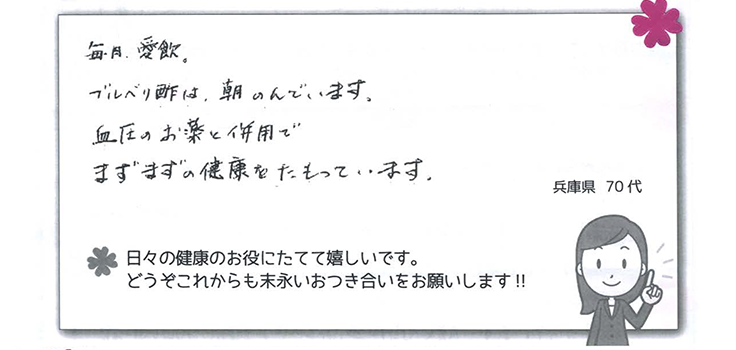 毎月、愛飲。
ブルベリ酢は、朝のんでいます。
血圧のお薬と併用で
まずまずの健康をたもっています。
兵庫県 70代
日々の健康のお役にたてて嬉しいです。
どうぞこれからも末永いおつき合いをお願いします!!